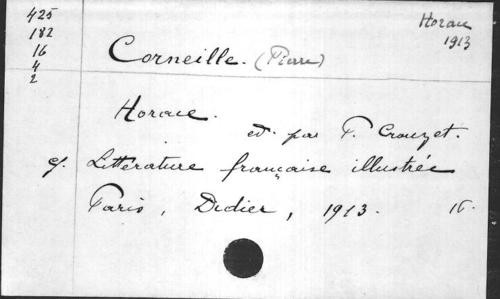 425
182
16
4
2
Horace
1913
Corneille. (Pierre)
Horace.
ed. par P. Crouzet.
cf. Littérature française illustrée
Paris, Didier, 1913. 16.